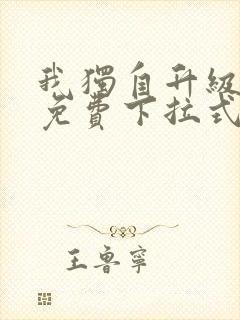 我獨自升級
免費下拉式
王魯寧